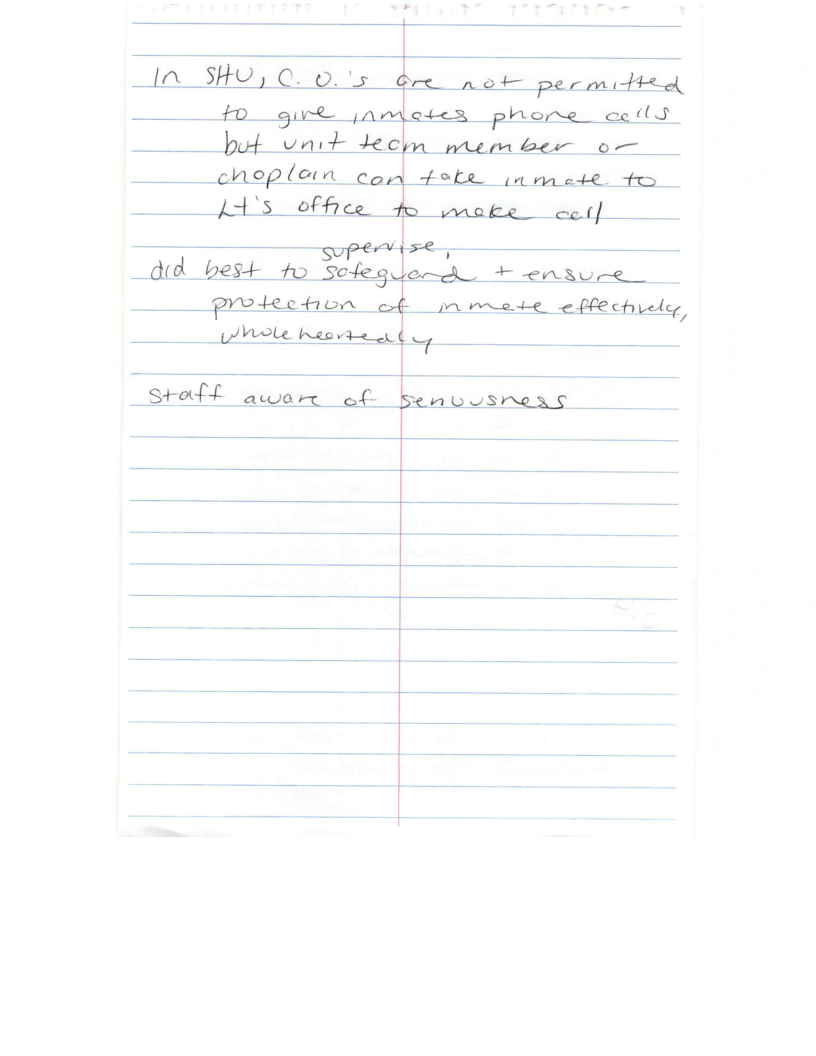 In SHU, C.O.'s are not permitted
to give inmates phone calls
but unit team member or
chaplain can take inmate to
Lt's office to make call
supervise,
did best to safeguard + ensure
protection of inmate effectively,
whole heartedly
staff aware of seriousness